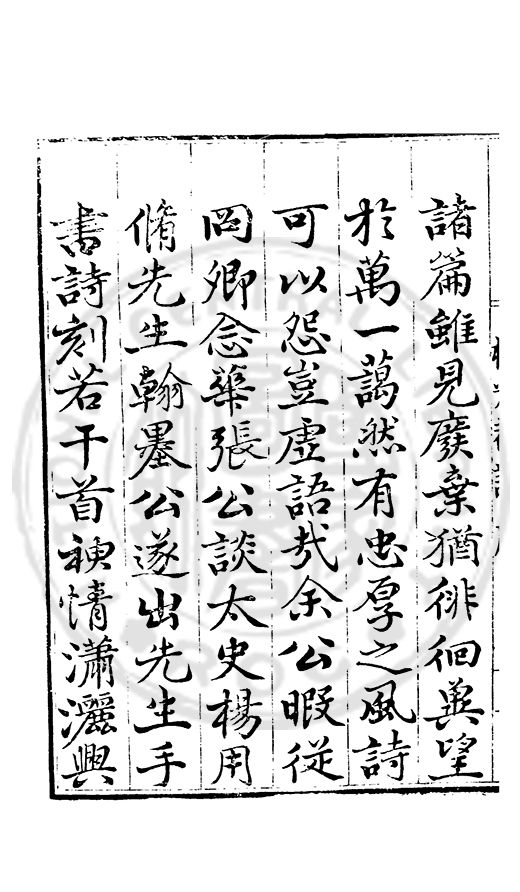 諸篇雖見廢棄猶徘徊冀望
於萬一藹然有忠厚之風詩
可以怨豈虛語哉余公暇従
冏卿念華張公談太史楊用
脩先生翰墨公遂出先生手
書詩刻若干首神情瀟灑興